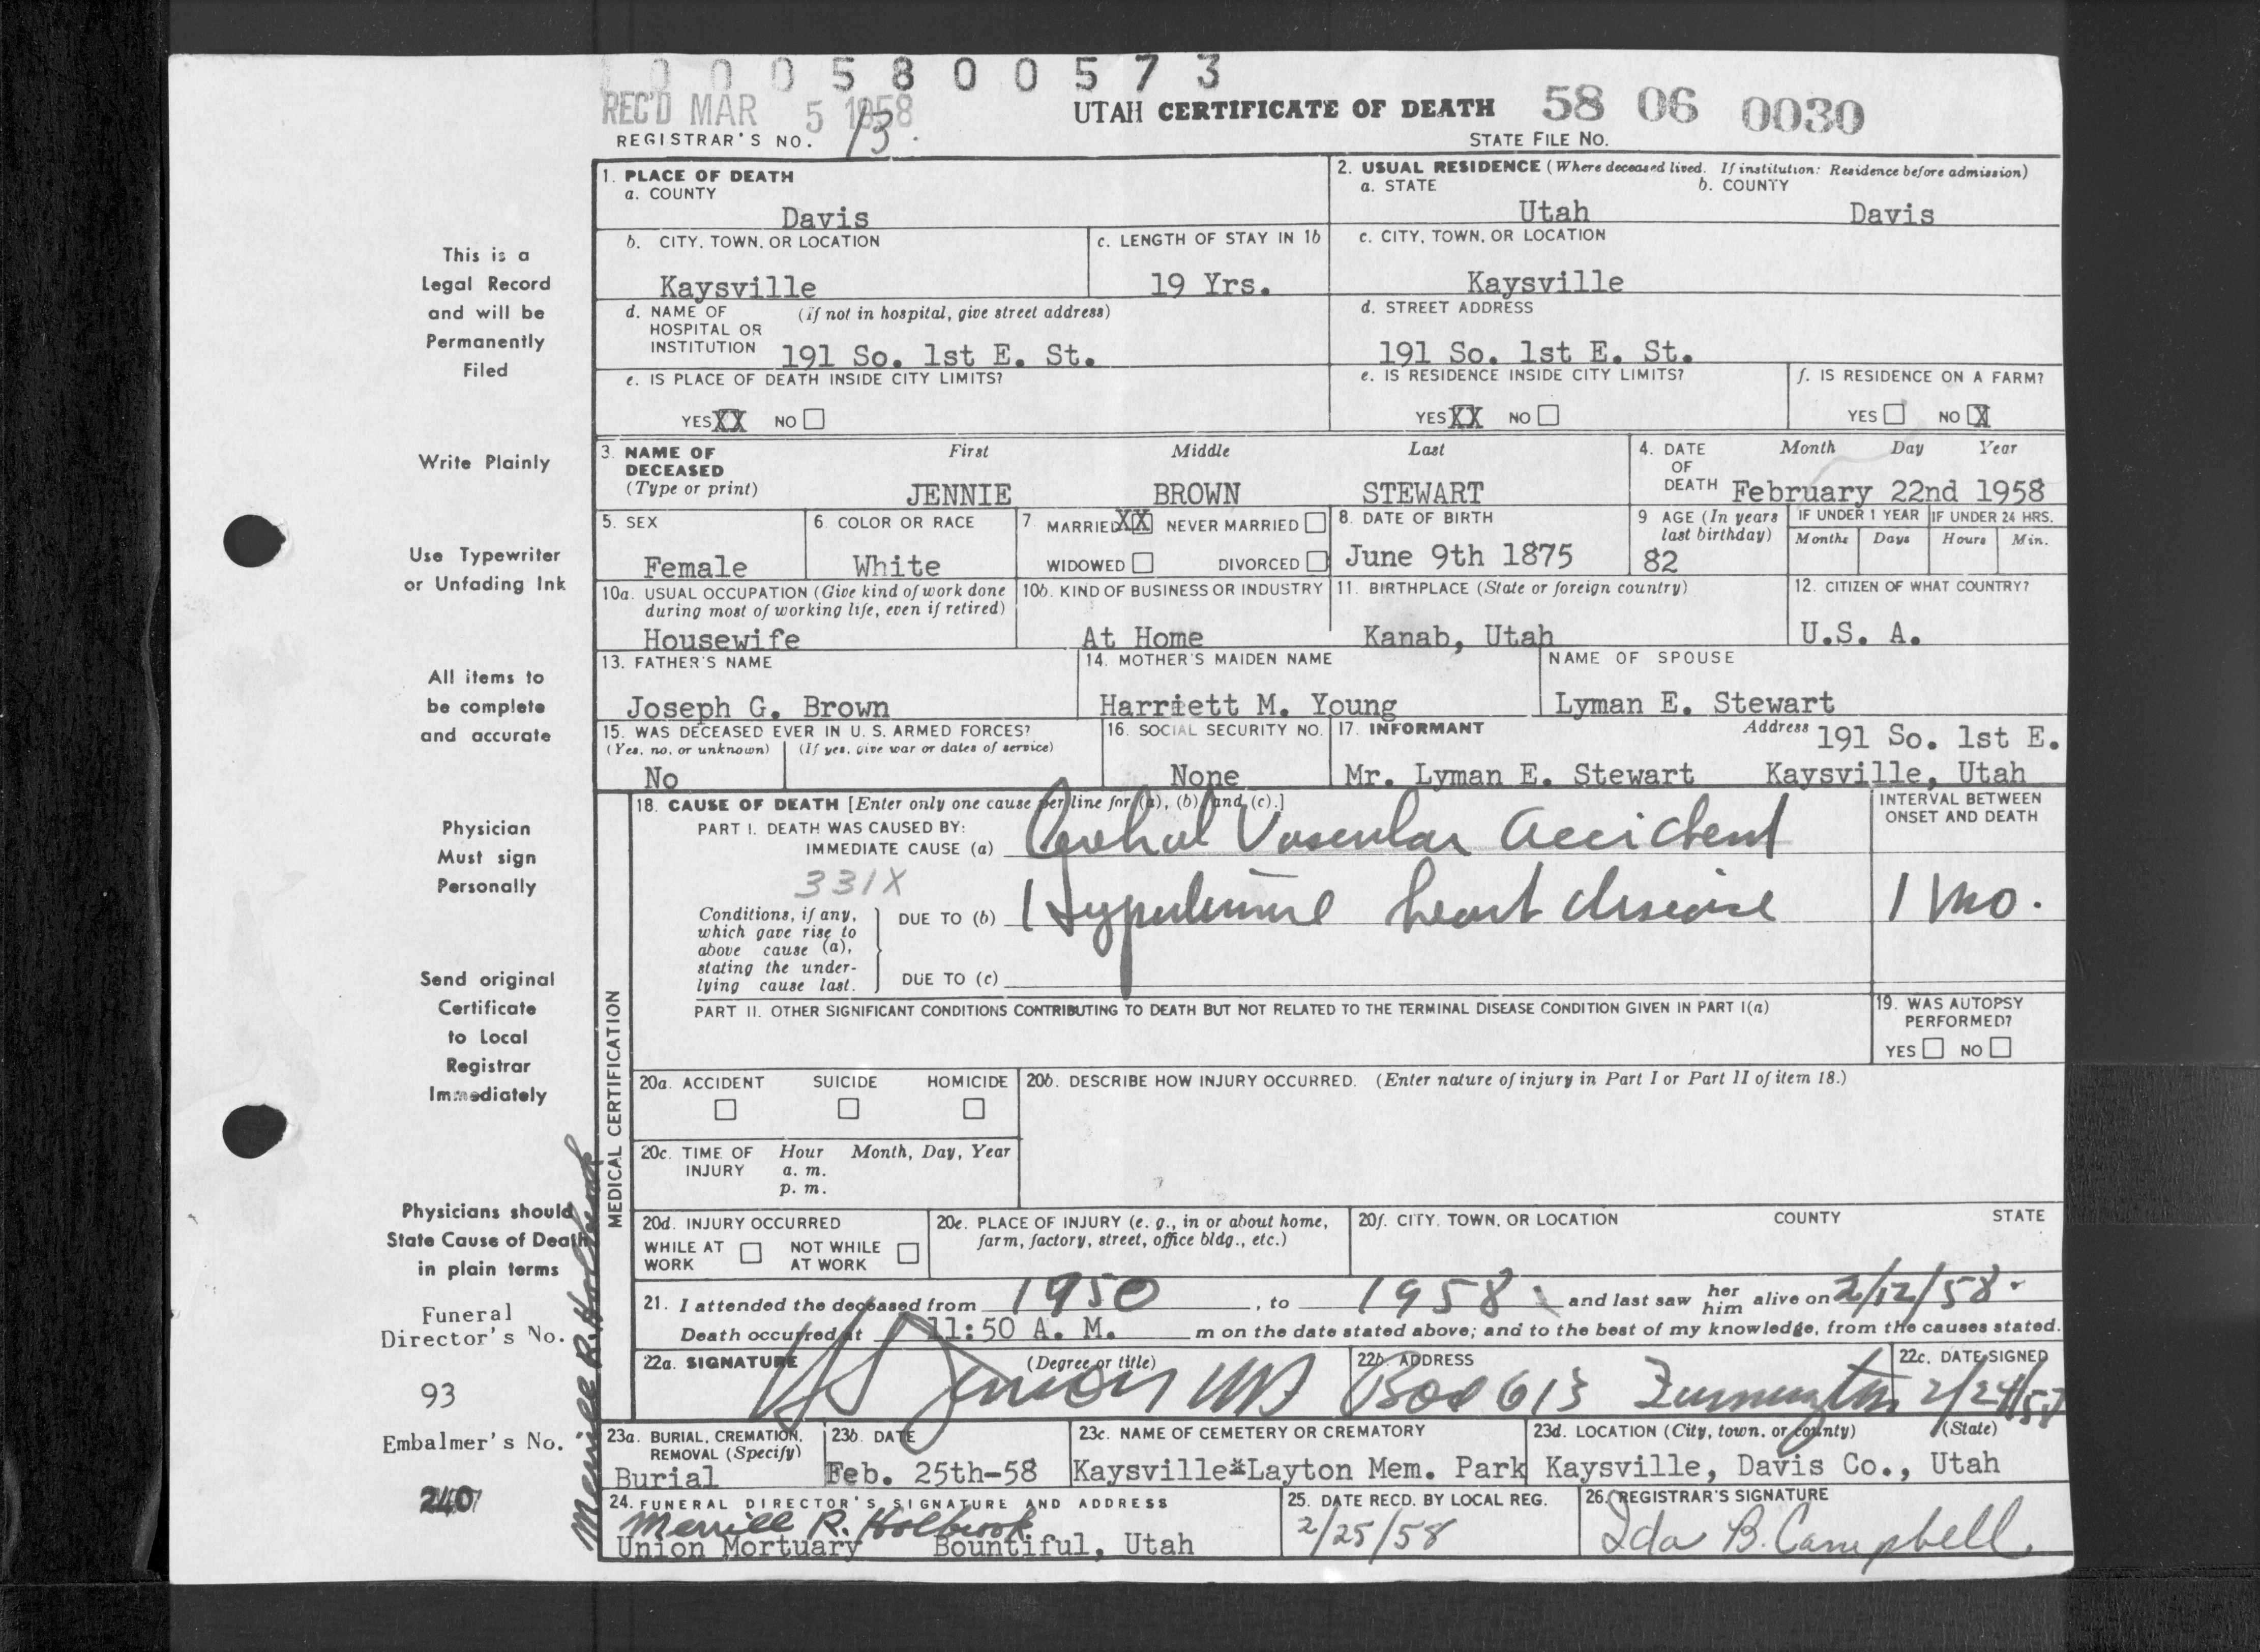 0 0 0 5 8 0 0 5 7 3
REC'D MAR 5 1958
UTAH CERTIFICATE OF DEATH 58 06 0030
REGISTRAR'S NO. 13. STATE FILE NO.
1. PLACE OF DEATH
a. COUNTY
Davis
2. USUAL RESIDENCE (Where deceased lived. If institution: Residence before admission)
a. STATE b. COUNTY
Utah Davis
b. CITY, TOWN, OR LOCATION
Kaysville
c. LENGTH OF STAY IN 1b
19 Yrs.
c. CITY, TOWN, OR LOCATION
Kaysville
d. NAME OF (if not in hospital, give street address)
HOSPITAL OR
INSTITUTION 191 So. 1st E. St.
d. STREET ADDRESS
191 So. 1st E. St.
e. IS PLACE OF DEATH INSIDE CITY LIMITS?
YES XX NO
e. IS RESIDENCE INSIDE CITY LIMITS?
YES XX NO
f. IS RESIDENCE ON A FARM?
YES NO X
3. NAME OF DECEASED
(Type or print)
First Middle Last
JENNIE BROWN STEWART
4. DATE OF DEATH
Month Day Year
February 22nd 1958
5. SEX
Female
6. COLOR OR RACE
White
7. MARRIED XX NEVER MARRIED
WIDOWED DIVORCED
8. DATE OF BIRTH
June 9th 1875
9 AGE (In years
last birthday)
82
IF UNDER 1 YEAR IF UNDER 24 HRS.
Months Days Hours Min.
10a. USUAL OCCUPATION (Give kind of work done
during most of working life, even if retired)
Housewife
10b. KIND OF BUSINESS OR INDUSTRY
At Home
11. BIRTHPLACE (State or foreign country)
Kanab, Utah
12. CITIZEN OF WHAT COUNTRY?
U.S. A.
13. FATHER'S NAME
Joseph G. Brown
14. MOTHER'S MAIDEN NAME
Harriett M. Young
NAME OF SPOUSE
Lyman E. Stewart
15. WAS DECEASED EVER IN U. S. ARMED FORCES?
(Yes, no, or unknown) (If yes, give war or dates of service)
No
16. SOCIAL SECURITY NO.
None
17. INFORMANT Address 191 So. 1st E.
Mr. Lyman E. Stewart Kaysville, Utah
MEDICAL CERTIFICATION
18. CAUSE OF DEATH [Enter only one cause per line for (a), (b), and (c).]
PART I. DEATH WAS CAUSED BY:
IMMEDIATE CAUSE (a) Cerebral Vascular accident
331X
Conditions, if any,
which gave rise to
above cause (a),
stating the under-
lying cause last.
DUE TO (b) Hypertensive heart disease
DUE TO (c)
INTERVAL BETWEEN
ONSET AND DEATH
1 mo.
PART II. OTHER SIGNIFICANT CONDITIONS CONTRIBUTING TO DEATH BUT NOT RELATED TO THE TERMINAL DISEASE CONDITION GIVEN IN PART I(a)
19. WAS AUTOPSY
PERFORMED?
YES NO
20a. ACCIDENT SUICIDE HOMICIDE
20b. DESCRIBE HOW INJURY OCCURRED. (Enter nature of injury in Part I or Part II of item 18.)
20c. TIME OF INJURY
Hour Month, Day, Year
a. m.
p. m.
20d. INJURY OCCURRED
WHILE AT WORK
NOT WHILE AT WORK
20e. PLACE OF INJURY (e. g., in or about home,
farm, factory, street, office bldg., etc.)
20f. CITY, TOWN, OR LOCATION COUNTY STATE
21. I attended the deceased from 1950, to 1958 and last saw her him alive on 2/12/58.
Death occurred at 11:50 A. M. m on the date stated above; and to the best of my knowledge, from the causes stated.
22a. SIGNATURE (Degree or title)
MD
22b. ADDRESS
Box 613 Farmington
22c. DATE SIGNED
2/24/58
23a. BURIAL, CREMATION,
REMOVAL (Specify)
Burial
23b. DATE
Feb. 25th-58
23c. NAME OF CEMETERY OR CREMATORY
Kaysville*Layton Mem. Park
23d. LOCATION (City, town, or county) (State)
Kaysville, Davis Co., Utah
24. FUNERAL DIRECTOR'S SIGNATURE AND ADDRESS
Merrill R. Holbrook
Union Mortuary Bountiful, Utah
25. DATE RECD. BY LOCAL REG.
2/25/58
26. REGISTRAR'S SIGNATURE
Ida B. Campbell
This is a
Legal Record
and will be
Permanently
Filed
Write Plainly
Use Typewriter
or Unfading Ink
All items to
be complete
and accurate
Physician
Must sign
Personally
Send original
Certificate
to Local
Registrar
Immediately
Physicians should
State Cause of Death
in plain terms
Funeral
Director's No.
93
Embalmer's No.
240
Merrill R. Holbrook